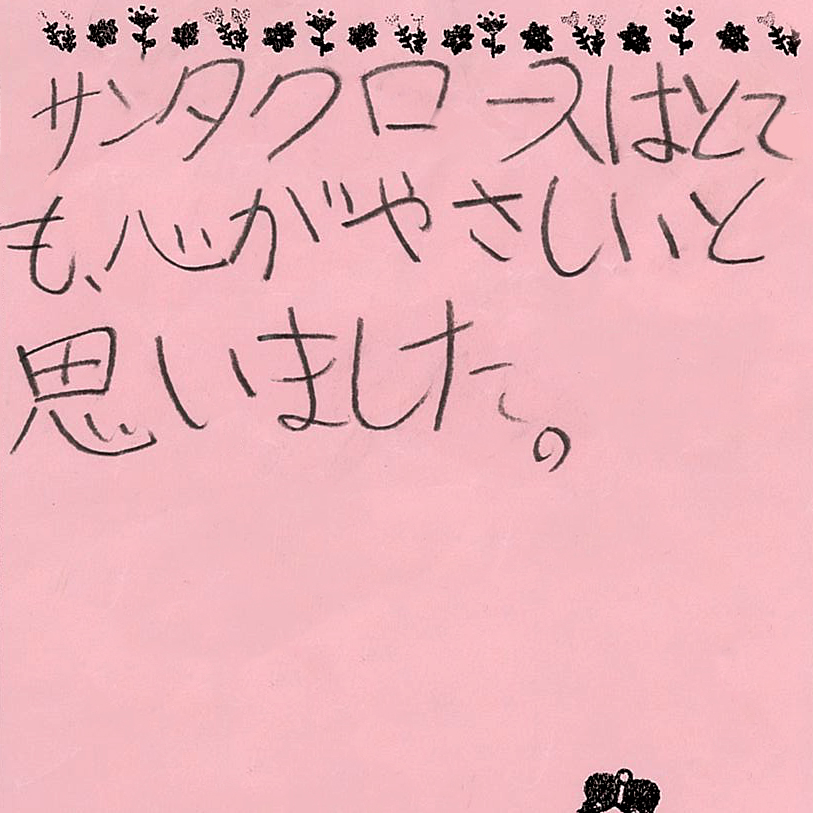 サンタクロースはとて
も、心がやさしいと
思いました。